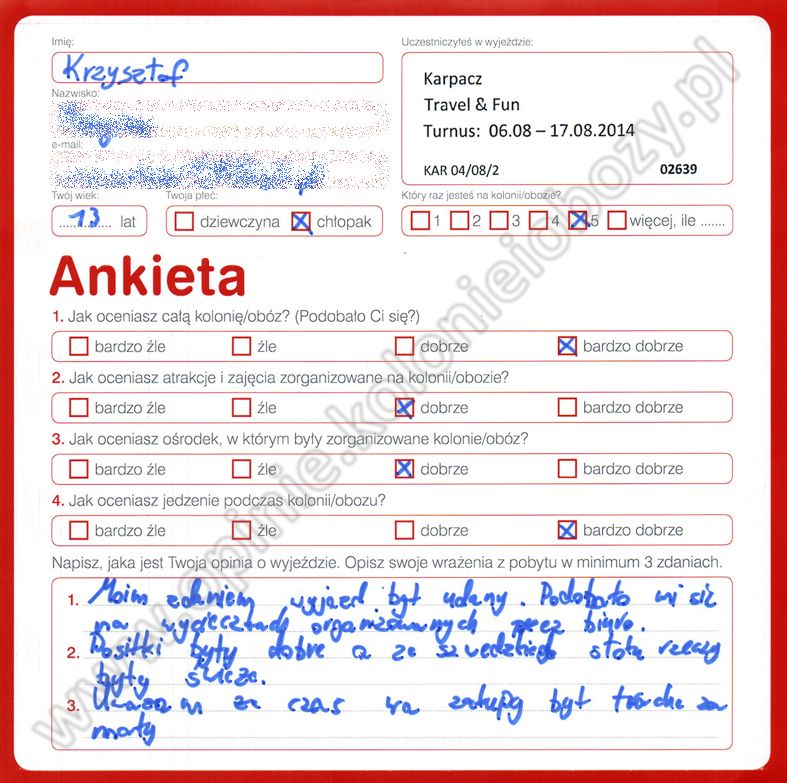 Imię:
Uczestniczyłeś w wyjeździe:
Krzysztof
Karpacz
Travel & Fun
Turnus: 06.08 – 17.08.2014
KAR 04/08/2 02639
Nazwisko:
e-mail:
Twój wiek:
Twoja płeć:
Który raz jesteś na kolonii/obozie?
13 lat
dziewczyna chłopak
1 2 3 4 5 więcej, ile .......
Ankieta
1. Jak oceniasz całą kolonię/obóz? (Podobało Ci się?)
bardzo źle źle dobrze bardzo dobrze
2. Jak oceniasz atrakcje i zajęcia zorganizowane na kolonii/obozie?
bardzo źle źle dobrze bardzo dobrze
3. Jak oceniasz ośrodek, w którym były zorganizowane kolonie/obóz?
bardzo źle źle dobrze bardzo dobrze
4. Jak oceniasz jedzenie podczas kolonii/obozu?
bardzo źle źle dobrze bardzo dobrze
Napisz, jaka jest Twoja opinia o wyjeździe. Opisz swoje wrażenia z pobytu w minimum 3 zdaniach.
1. Moim zdaniem wyjazd był udany. Podobało mi się
na wycieczkach organizowanych przez biuro.
2. Posiłki były dobre a ze szwedzkiego stołu rzeczy
były świeże.
3. Uważam że czas na zakupy był trochę za
mały
www.opinie.kolonieiobozy.pl